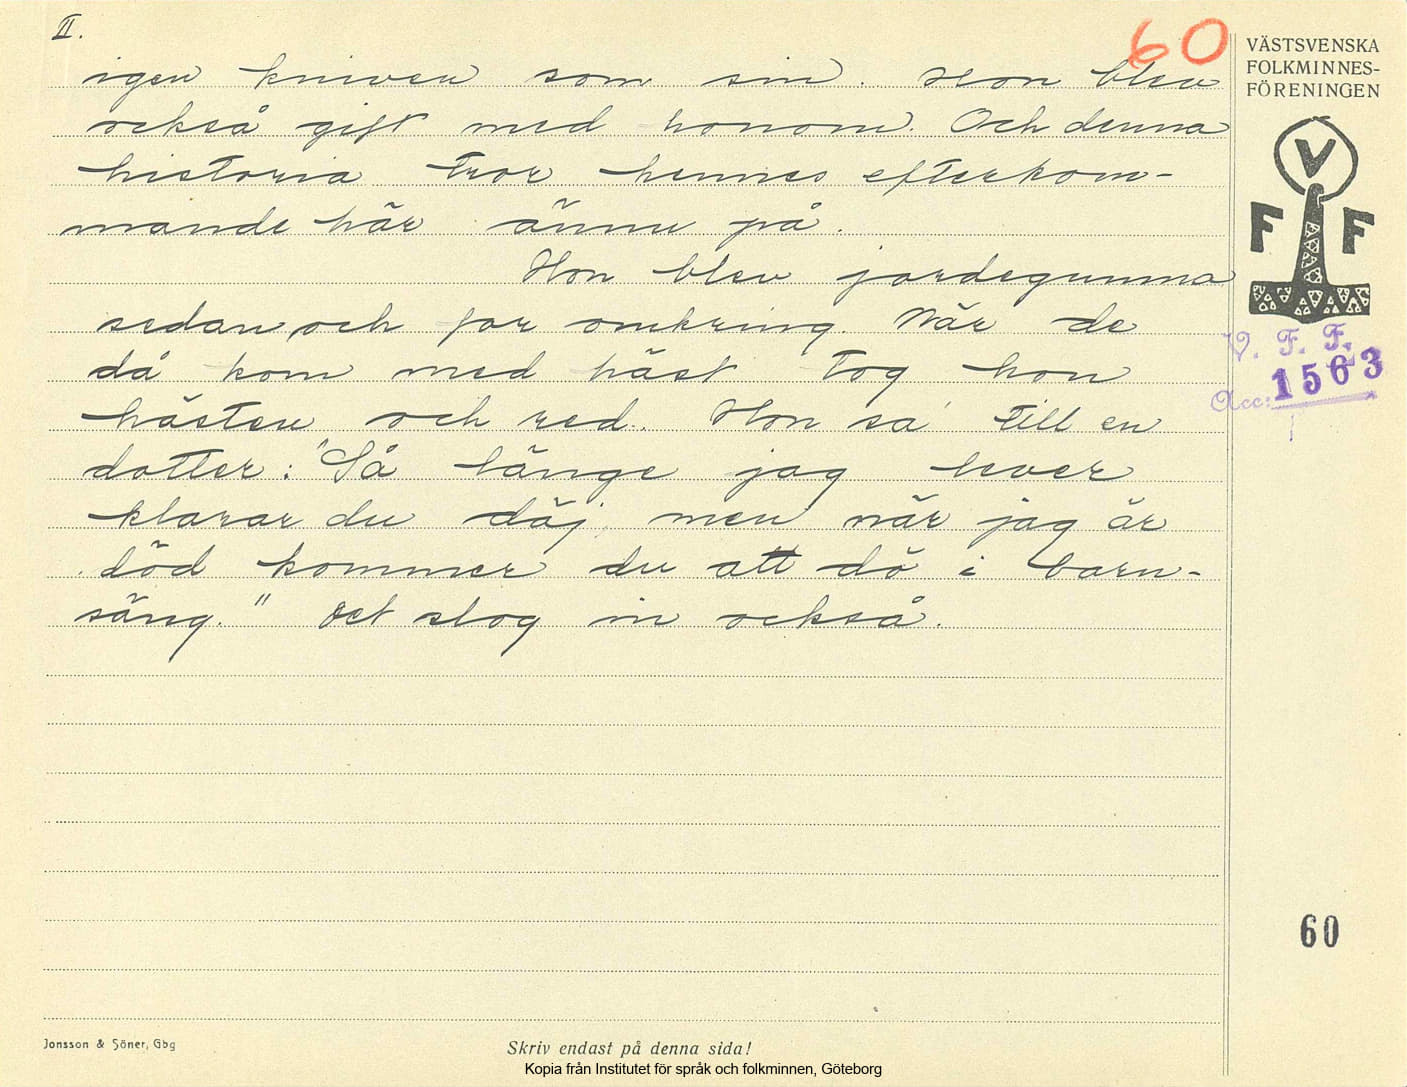 II.
60
igen kniven som sin. Hon blev
också gift med honom. Och denna
historia tror hennes efterkom-
mande här ännu på.
Hon blev jordegumma
sedan och for omkring. När de
då kom med häst tog hon
hästen och red. Hon sa' till en
dotter: "Så länge jag lever
klarar du däj, men när jag är
död kommer du att dö i barn-
säng." Det slog in också.
VÄSTSVENSKA
FOLKMINNES-
FÖRENINGEN
V
F F
V. F. F.
Acc: 1563
60
Jonsson & Söner, Gbg
Skriv endast på denna sida!
Kopia från Institutet för språk och folkminnen, Göteborg